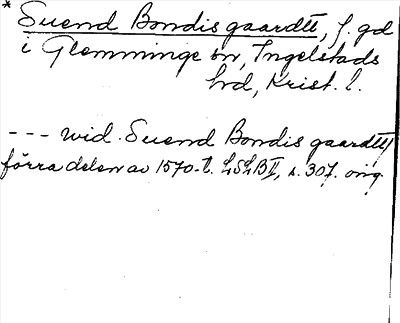 * Suend Bondis gaardtt, f. gd
i Glemminge sn, Ingelstads
hrd, Krist. l.
--- wid. Suend Bondis gaardtt/
förra delen av 1570-t. LSLB II, s. 307. orig.